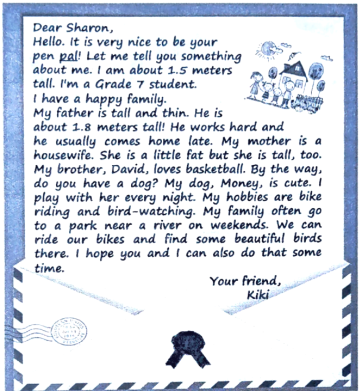 Dear Sharon,
Hello. It is very nice to be your
pen pal! Let me tell you something
about me. I am about 1.5 meters
tall. I'm a Grade 7 student.
I have a happy family.
My father is tall and thin. He is
about 1.8 meters tall! He works hard and
he usually comes home late. My mother is a
housewife. She is a little fat but she is tall, too.
My brother, David, loves basketball. By the way,
do you have a dog? My dog, Money, is cute. I
play with her every night. My hobbies are bike
riding and bird-watching. My family often go
to a park near a river on weekends. We can
ride our bikes and find some beautiful birds
there. I hope you and I can also do that some
time.
Your friend,
Kiki